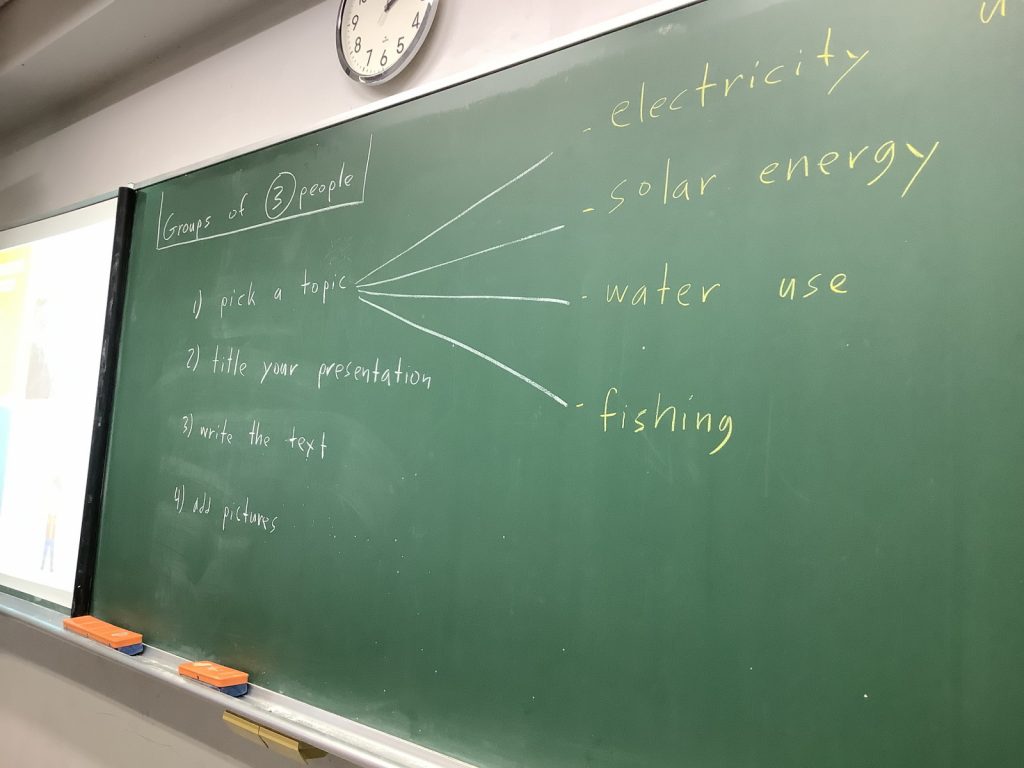 Groups of 3 people
1) pick a topic
2) title your presentation
3) write the text
4) add pictures
- electricity
- solar energy
- water use
- fishing
9 8 7 6 5 4